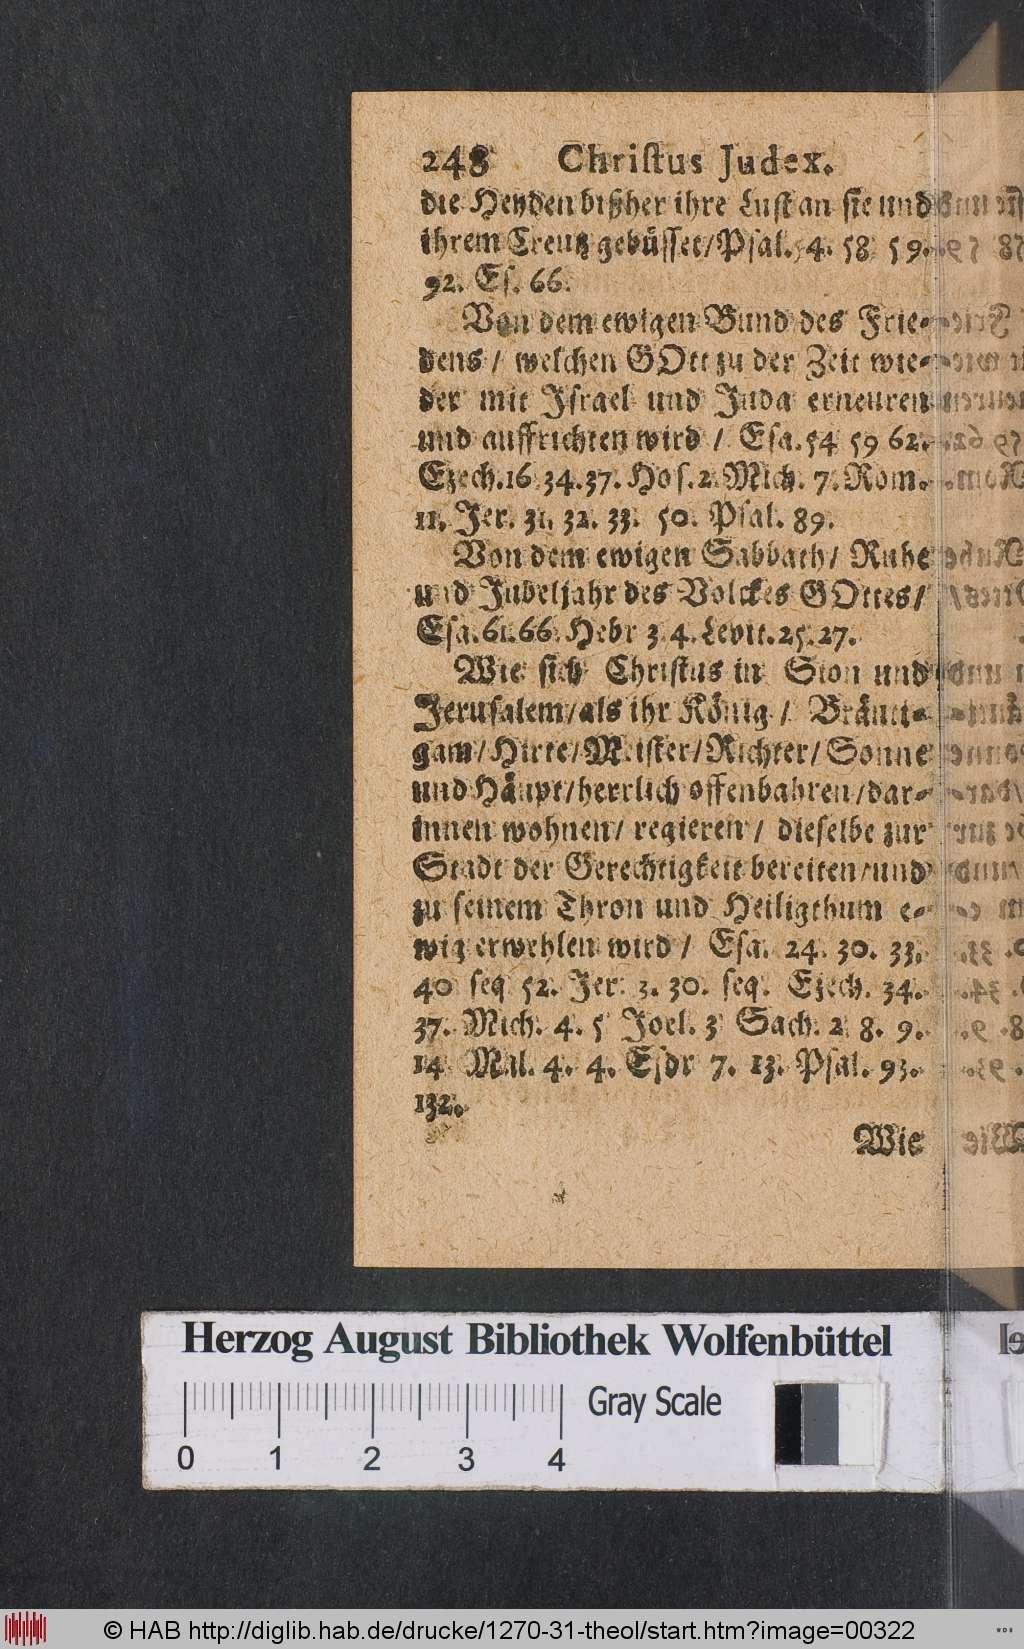 248 Christus Judex.
die Heyden bißher ihre Lust an sie und
ihrem Creutz gebüsset/Psal. 54. 58 59.
92. Es. 66.
Von dem ewigen Bund des Frie-
dens/ welchen GOtt zu der Zeit wie-
der mit Israel und Juda erneuren
und auffrichten wird / Esa. 54 59 62.
Ezech. 16 34. 37. Hos. 2. Mich. 7. Rom.
11. Jer. 31. 32. 33. 50. Psal. 89.
Von dem ewigen Sabbath/ Ruhe
und Jubeljahr des Volckes GOttes/
Esa. 61. 66. Hebr 3 4. Levit. 25. 27.
Wie sich Christus in Sion und
Jerusalem/als ihr König / Bräuti-
gam/Hirte/Meister/Richter/Sonne
und Häupt/herrlich offenbahren/dar-
innen wohnen/ regieren/ dieselbe zur
Stadt der Gerechtigkeit bereiten/und
zu seinem Thron und Heiligthum e-
wig erwehlen wird / Esa. 24. 30. 33.
40 seq 52. Jer. 3. 30. seq. Ezech. 34.
37. Mich. 4. 5 Joel. 3 Sach. 2 8. 9.
14 Mal. 4. 4. Esdr 7. 13. Psal. 93.
132.
Wie
Herzog August Bibliothek Wolfenbüttel
Gray Scale
0 1 2 3 4
© HAB http://diglib.hab.de/drucke/1270-31-theol/start.htm?image=00322